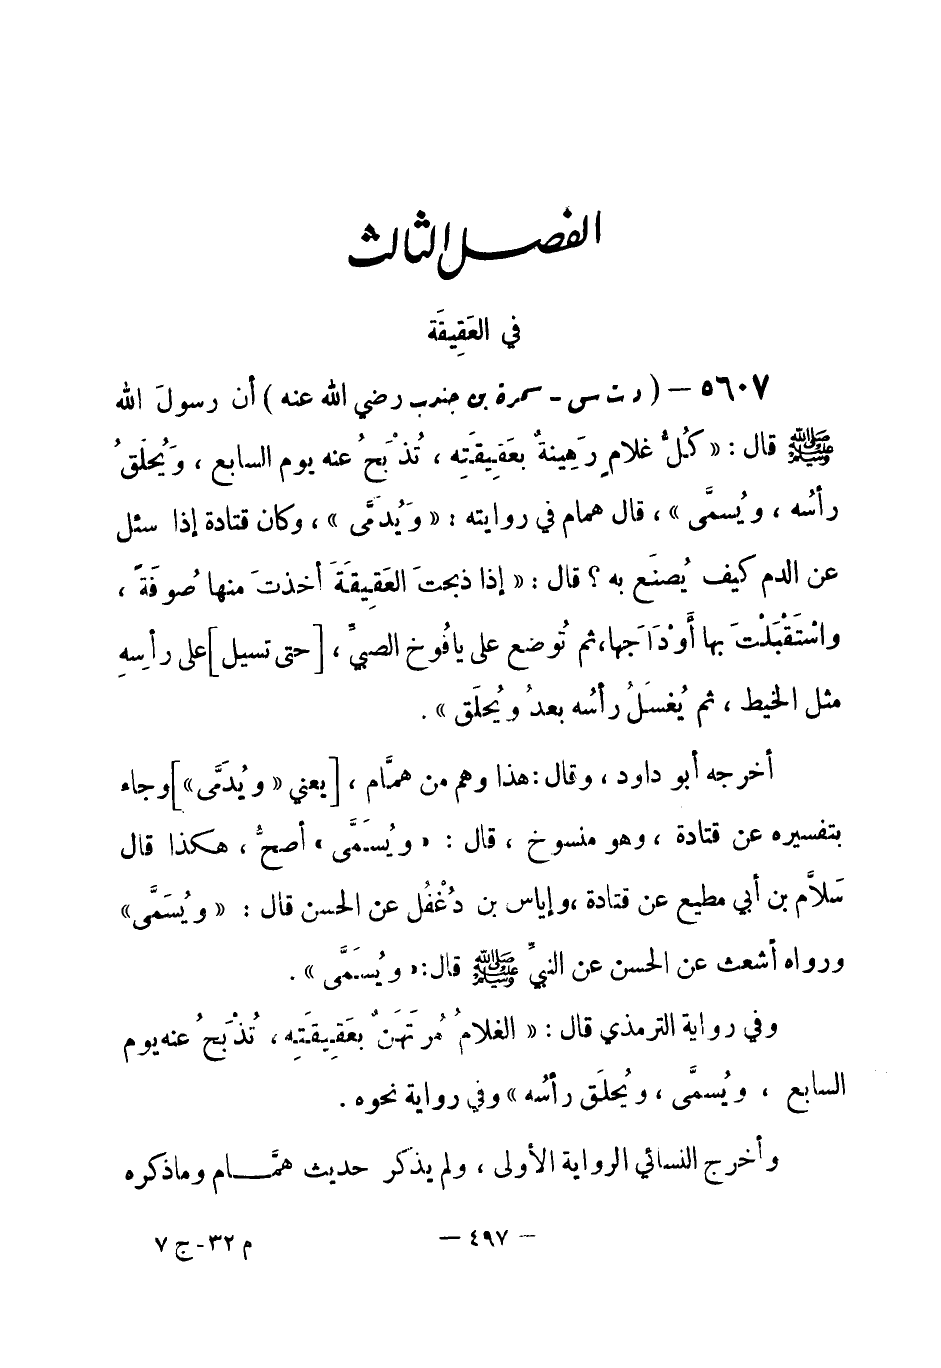 الفصل الثالث
في العَقِيقَة
٥٦٠٧ – ( د ت س – سمرة بن جندب رضي الله عنه ) أن رسولَ الله
ﷺ قال : « كُلُّ غلامٍ رَهِينةٌ بعَقِيقَتِه ، تُذْبَحُ عنه يوم السابع ، ويُحلَقُ
رأسُه ، ويُسمَّى » ، قال همام في روايته : « ويُدمَّى » ، وكان قتادة إذا سئل
عن الدم كيف يُصنَع به ؟ قال : « إذا ذبحتَ العَقِيقَةَ أخذتَ منها صُوفَةً ،
واسْتَقْبَلْتَ بها أوْدَاجها،ثم تُوضع على يافُوخ الصبيِّ ، [حتى تسيل]على رأسِهِ
مثل الخيط ، ثم يُغسَلُ رأسُه بعدُ ويُحلَق » .
أخرجه أبو داود ، وقال:هذا وهم من همَّام ، [يعني « ويُدَمَّى»]وجاء
بتفسيره عن قتادة ، وهو منسوخ ، قال : « ويُسَمَّى » أصحُّ ، هكذا قال
سَلاَّم بن أبي مطيع عن قتادة ،وإياس بن دُغْفُل عن الحسن قال : « ويُسَمَّى»
ورواه أشعث عن الحسن عن النبيِّ ﷺ قال:« ويُسَمَّى » .
وفي رواية الترمذي قال : « الغلامُ مُرتَهَنٌ بعَقِيقَتِه ، تُذْبَحُ عنه يوم
السابع ، ويُسمَّى ، ويُحلَق رأسُه » وفي رواية نحوه .
وأخرج النسائي الرواية الأولى ، ولم يذكر حديث همَّام وماذكره
– ٤٩٧ –
م ٣٢-ج ٧